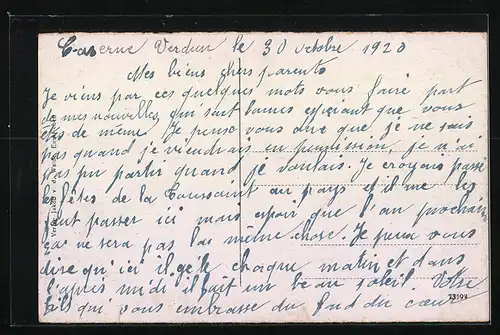 Caserne Verdun le 30 octobre 1920
Mes biens chers parents
Je viens par ces quelques mots vous faire part
de mes nouvelles, qui sont bonnes espérant que vous
êtes de même. Je peux vous dire que je ne sais
pas quand je viendrais en permission je n'ai
pas pu partir quand je voulais. Je croyais passé
les fêtes de la Toussaint au pays il me les
faut passer ici mais espoir que l'an prochain
ça ne sera pas la même chose. Je peux vous
dire qu'ici il gèle chaque matin et dans
l'après midi il fait un beau soleil. Votre
fils qui vous embrasse du fond du cœur
33194